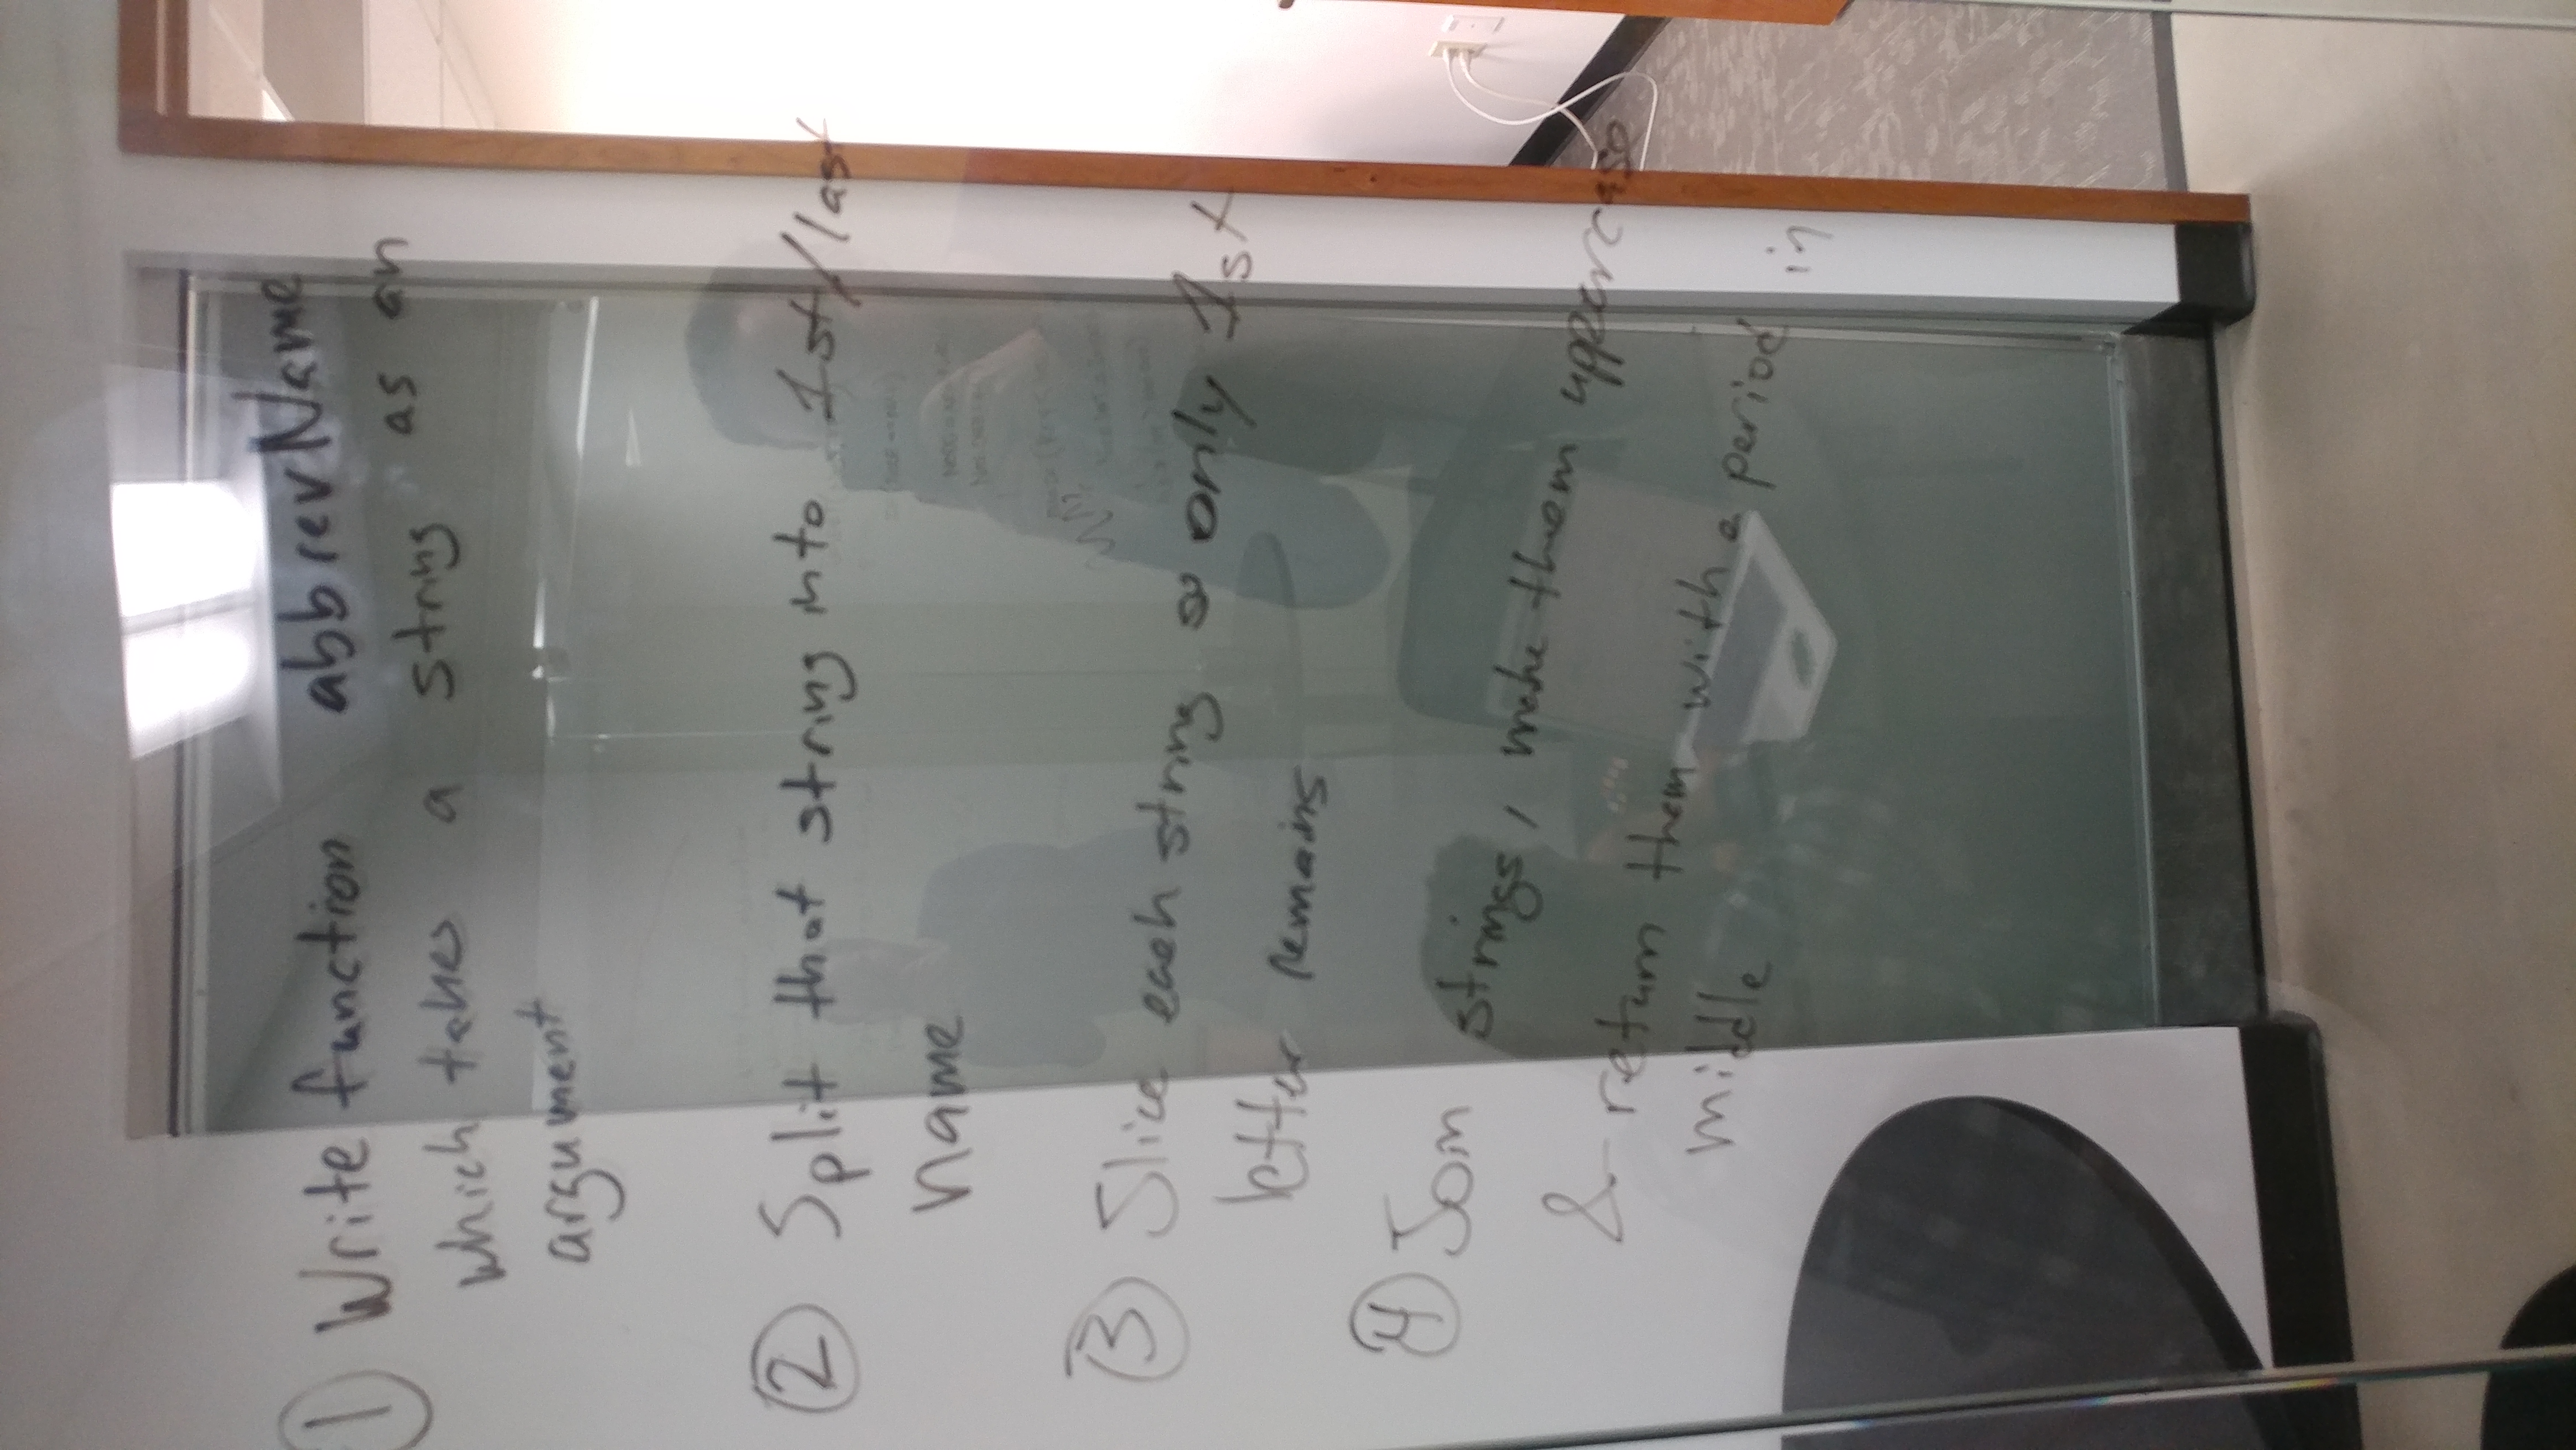 ① Write function abbrevName
which takes a string as an
argument
② Split that string into 1st/last
name
③ Slice each string so only 1st
letter remains
④ Join strings, make them uppercase
& return them with a period in
middle